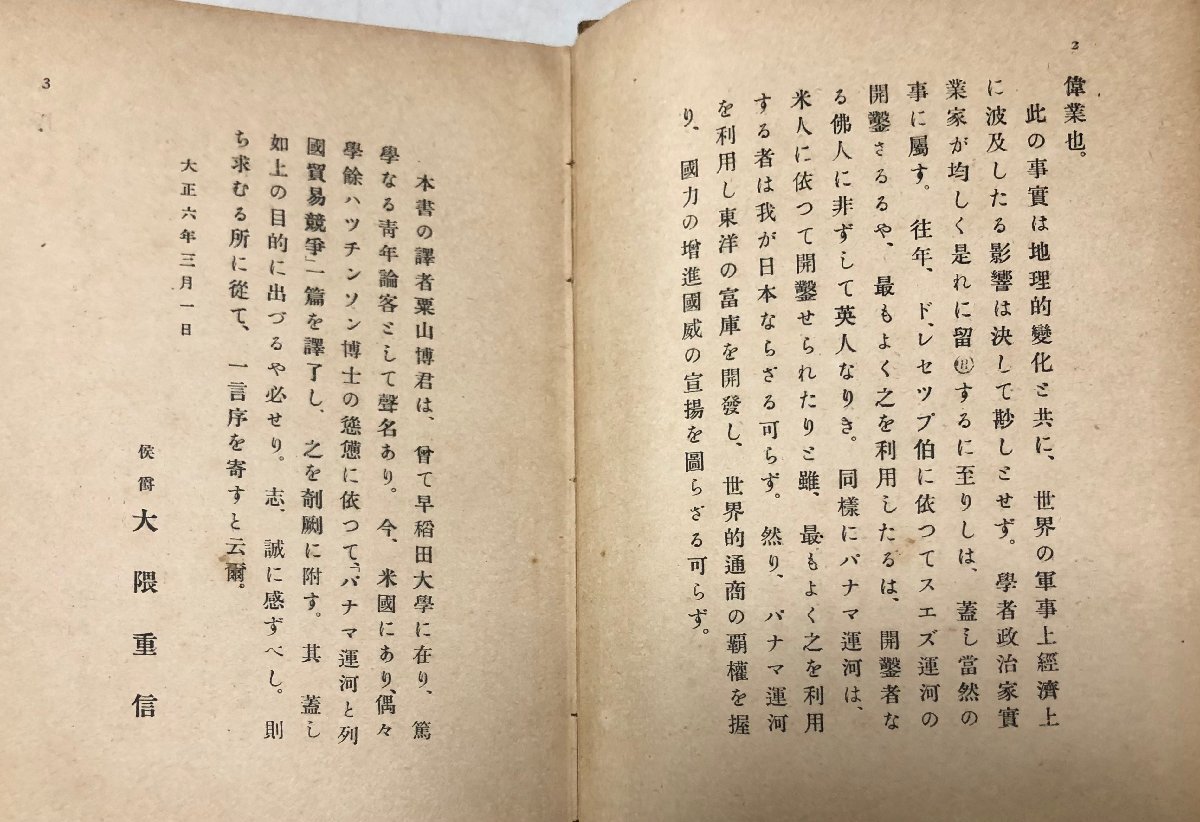 2
偉業也。
此の事實は地理的變化と共に、世界の軍事上經濟上
に波及したる影響は決して尠しとせず。學者政治家實
業家が均しく是れに留するに至りしは、蓋し當然の
事に屬す。往年、ド、レセツプ伯に依つてスエズ運河の
開鑿さるるや、最もよく之を利用したるは、開鑿者な
る佛人に非ずして英人なりき。同樣にパナマ運河は、
米人に依つて開鑿せられたりと雖、最もよく之を利用
する者は我が日本ならざる可らず。然り、パナマ運河
を利用し東洋の富庫を開發し、世界的通商の覇權を握
り、國力の增進國威の宣揚を圖らざる可らず。
3
本書の譯者粟山博君は、曾て早稻田大學に在り、篤
學なる靑年論客として聲名あり。今、米國にあり、偶々
學餘ハツチンソン博士の慫慂に依つて、「パナマ運河と列
國貿易競爭」一篇を譯了し、之を剞劂に附す。其蓋し
如上の目的に出づるや必せり。志、誠に感ずべし。則
ち求むる所に從て、一言序を寄すと云爾。
大正六年三月一日
侯爵 大隈重信